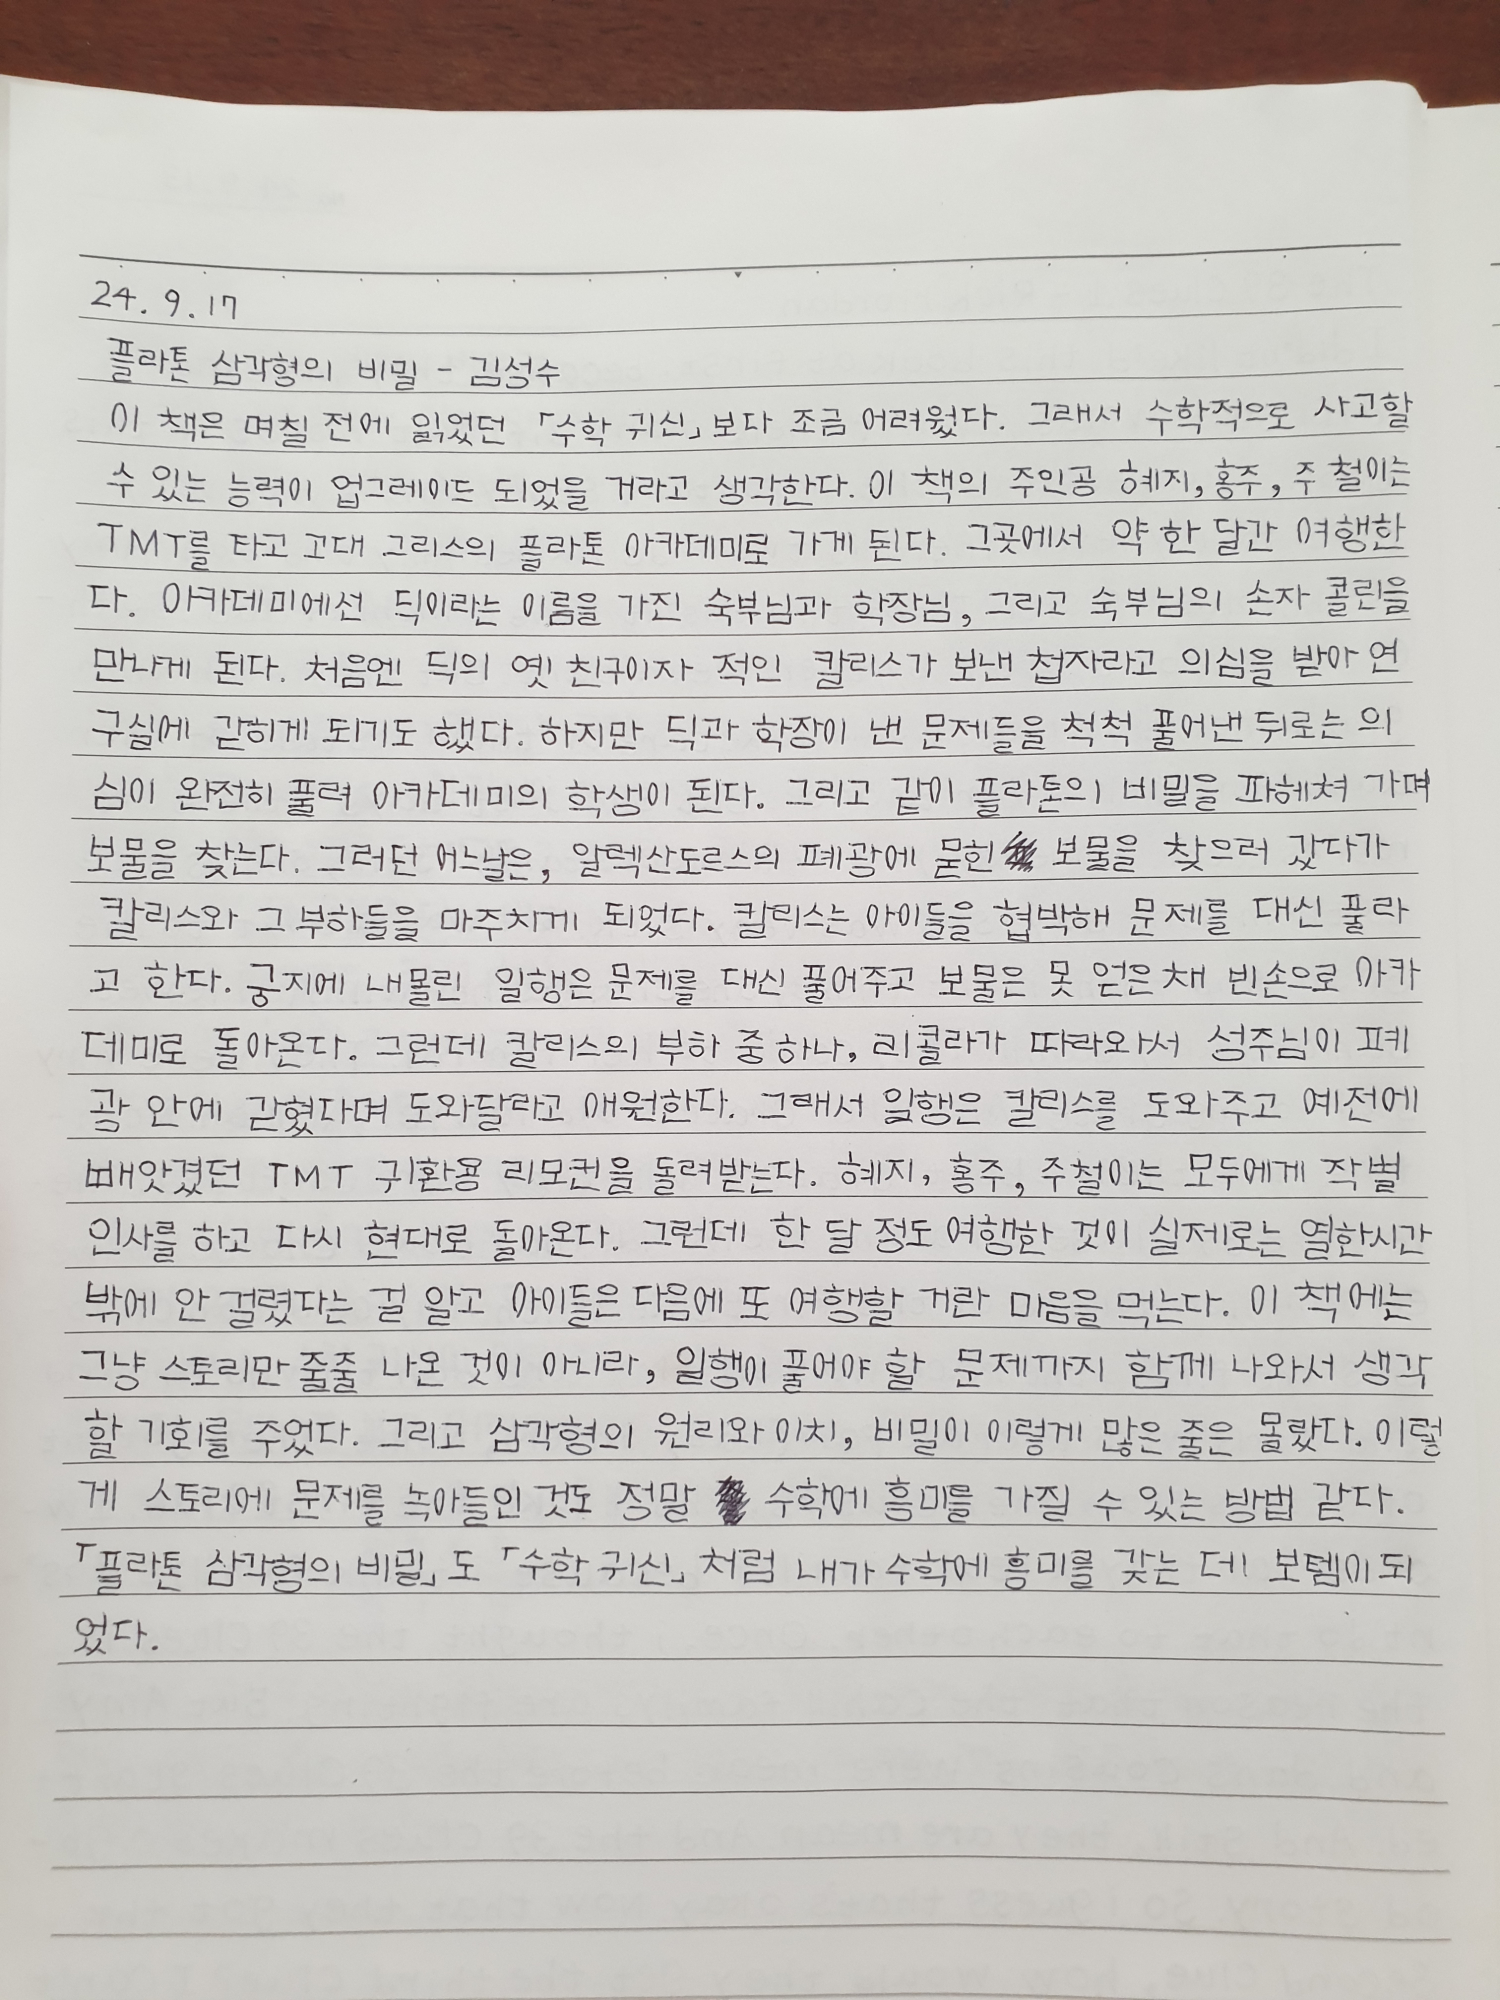 24. 9. 17
플라톤 삼각형의 비밀 - 김성수
이 책은 며칠 전에 읽었던 「수학 귀신」보다 조금 어려웠다. 그래서 수학적으로 사고할
수 있는 능력이 업그레이드 되었을 거라고 생각한다. 이 책의 주인공 혜지, 홍주, 주철이는
TMT를 타고 고대 그리스의 플라톤 아카데미로 가게 된다. 그곳에서 약 한 달간 여행한
다. 아카데미에선 딕이라는 이름을 가진 숙부님과 학장님, 그리고 숙부님의 손자 콜린을
만나게 된다. 처음엔 딕의 옛 친구이자 적인 칼리스가 보낸 첩자라고 의심을 받아 연
구실에 갇히게 되기도 했다. 하지만 딕과 학장이 낸 문제들을 척척 풀어낸 뒤로는 의
심이 완전히 풀려 아카데미의 학생이 된다. 그리고 같이 플라톤의 비밀을 파헤쳐 가며
보물을 찾는다. 그러던 어느날은, 알렉산도르스의 폐광에 묻힌 보물을 찾으러 갔다가
칼리스와 그 부하들을 마주치게 되었다. 칼리스는 아이들을 협박해 문제를 대신 풀라
고 한다. 궁지에 내몰린 일행은 문제를 대신 풀어주고 보물은 못 얻은 채 빈손으로 아카
데미로 돌아온다. 그런데 칼리스의 부하 중 하나, 리콜라가 따라와서 성주님이 폐
광 안에 갇혔다며 도와달라고 애원한다. 그래서 일행은 칼리스를 도와주고 예전에
빼앗겼던 TMT 귀환용 리모컨을 돌려받는다. 혜지, 홍주, 주철이는 모두에게 작별
인사를 하고 다시 현대로 돌아온다. 그런데 한 달 정도 여행한 것이 실제로는 열한시간
밖에 안 걸렸다는 걸 알고 아이들은 다음에 또 여행할 거란 마음을 먹는다. 이 책에는
그냥 스토리만 줄줄 나온 것이 아니라, 일행이 풀어야 할 문제까지 함께 나와서 생각
할 기회를 주었다. 그리고 삼각형의 원리와 이치, 비밀이 이렇게 많은 줄은 몰랐다. 이렇
게 스토리에 문제를 녹아들인 것도 정말 수학에 흥미를 가질 수 있는 방법 같다.
「플라톤 삼각형의 비밀」도 「수학 귀신」처럼 내가 수학에 흥미를 갖는 데 보템이 되
었다.